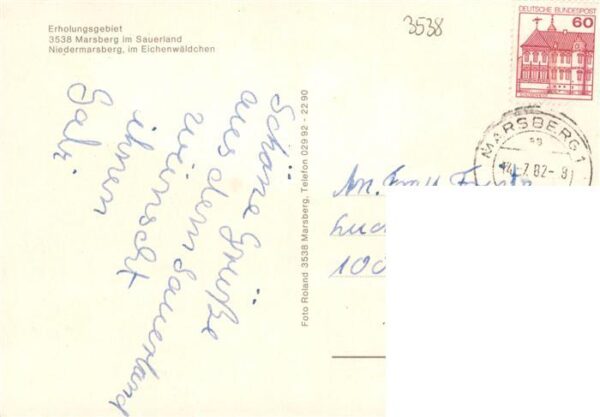 Erholungsgebiet
3538 Marsberg im Sauerland
Niedermarsberg, im Eichenwäldchen
3538
DEUTSCHE BUNDESPOST
60
MARSBERG 1
Schöne Grüße
aus dem Sauerland
wünscht
ihnen
Gabi
Foto Roland 3538 Marsberg, Telefon 02992 - 2290
An
100